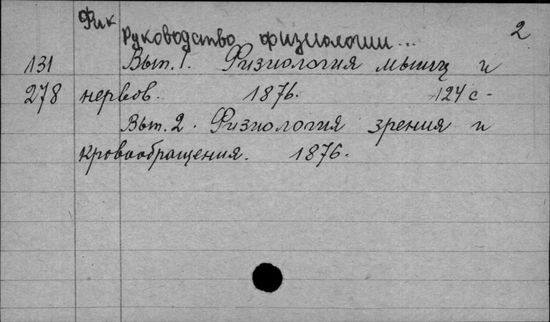 Фик
Руководство физиологии... 2
131 Вып.1. Физиология мышц и
278 нервов. 1876. 124 с-
Вып.2. Физиология зрения и
кровообращения. 1876.